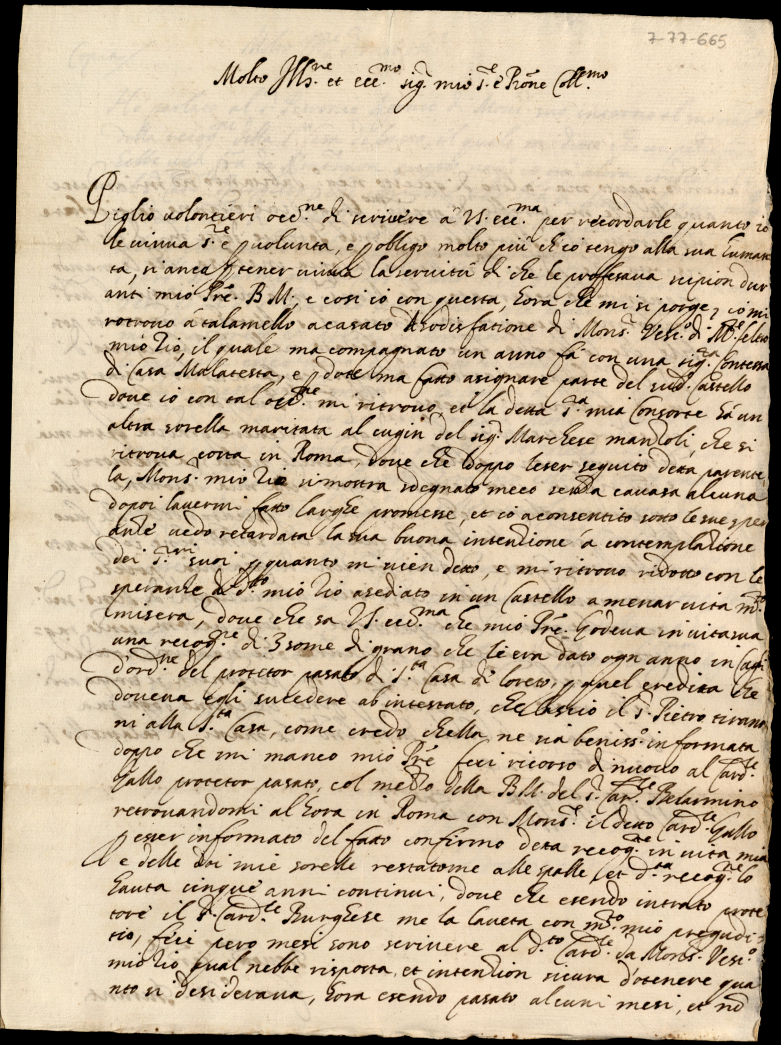 7-77-665
Molto Ill.re et ecc.mo sig.r mio s.re e Prone Coll.mo
Piglio volontieri occ.ne di scrivere à VS. ecc.ma per ricordarle quanto io
le vivua s.re e p volunta, e p obligo molto più ch'io tengo alla sua humani
ta, si anco p tener viva la servitù di che le profesava scipion dur
anti mio Pre. B.M., e così io con questa, hora che mi si porge, io mi
ritrovo á talamello acasato à sodisfatione di Mons.r Vesc.o di M.te feltro
mio Zio, il quale ma compagnato un anno fà con una sig.ra Contessa
di Casa Malatesta, e p dote ma fatto asignare parte del sud.o Castello
dove io con tal occ.ne mi ritrovo, et la detta s.ra mia Consorte há un
altra sorella maritata al cugin del sig.r Marchese , che si
ritrova costà in Roma, dove che doppo leser seguito detta parente
la, Mons.r mio Zio si mostra sdegnato meco senza causa alcuna
dopoi havermi fatto larghe promesse, et io aconsentito sotto le sue sper
anze vedo retardata la sua buona intentione à contemplatione
dei s.ri suoi p quanto mi vien detto, e mi ritrovo ridotto con le
speranze di d.to mio Zio asediato in un Castello a menar vita m.to
misera, dove che sa VS. ecc.ma che mio Pre. Godeva in vita sua
una recog.ne di 3 some di grano che le era dato ogni anno in
d'ord.ne del protetor pasato di S.ta Casa di loreto, p quel eredita che
doveva egli sucedere ab intestato, che lascio il s. Pietro tiran
ni alla S.ta Casa, come credo ch'ella ne sia beniss.o informata
doppo che mi manco mio Pre feci ricorso di nuovo al Card.le
Gallo protetor pasato, col mezzo della B.M. del s.r Car.le Belarmino
retrovandomi al hora in Roma con Mons.re il detto Card.le Gallo
p esser informato del fatto confirmo detta recog.ne in vita mia
e delle doi mie sorelle restatome alle spalle, et d.ta recog.ne lo
hauta cinque anni continui, dove che esendo intrato prote
tore il s. Card.le Burghese me la levata con m.to mio pregiudi-
tio, feci pero mesi sono scrivere al d.to Card.le da Mons.r Vesc.o
mio Zio qual nebbe risposta, et intention sicura d'otenere qua
nto si desiderava, hora esendo pasato alcuni mesi, et nō